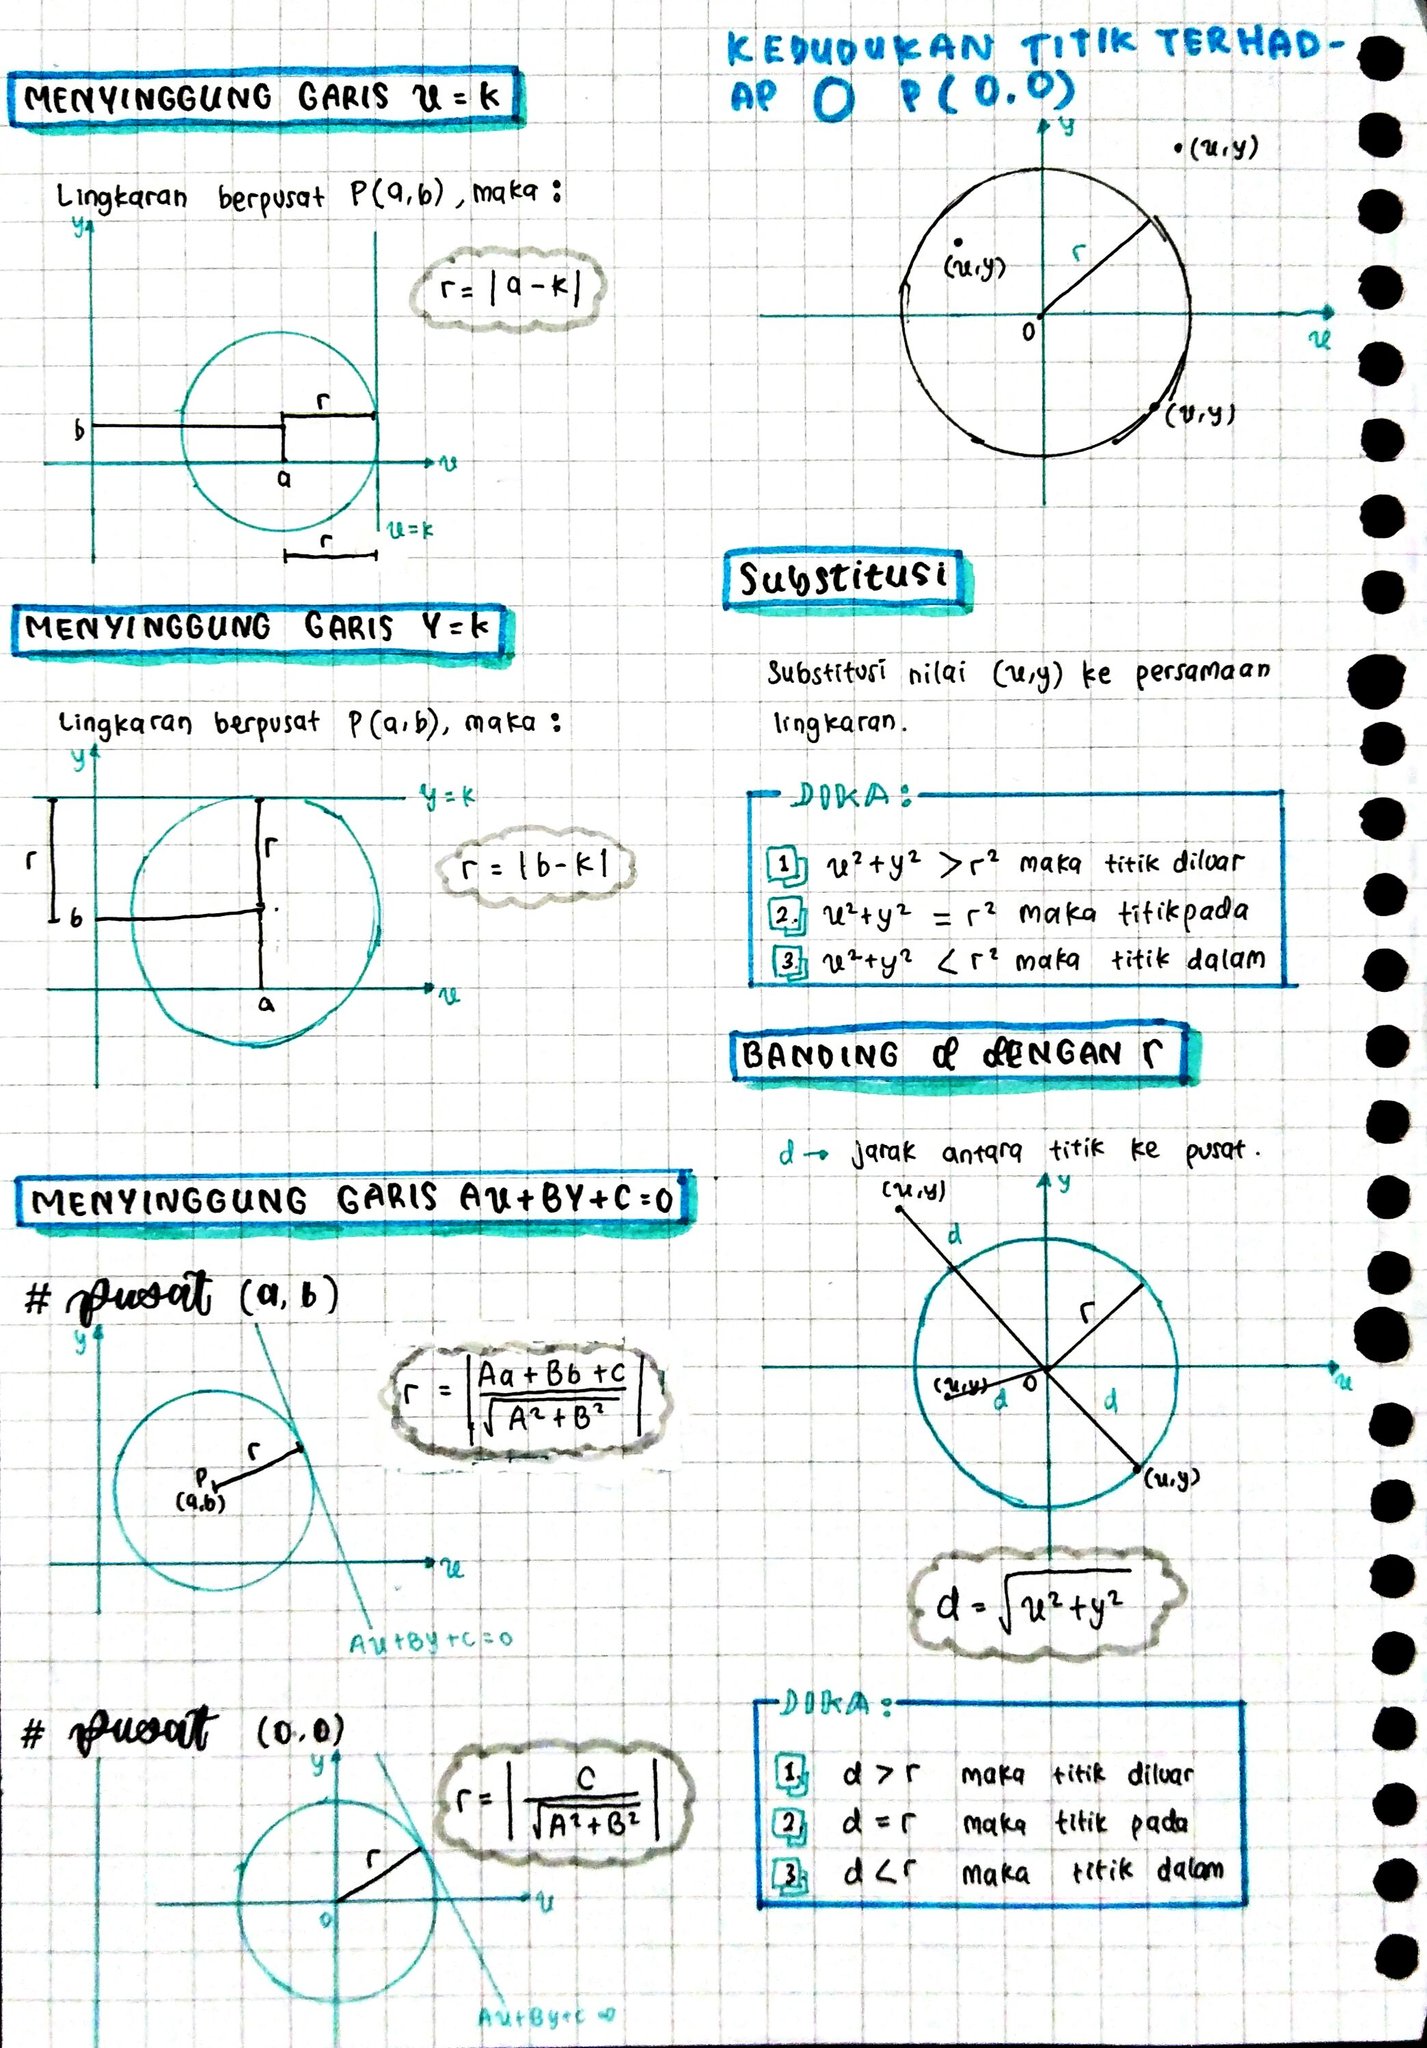 MENYINGGUNG GARIS x = k
Lingkaran berpusat P(a,b), maka :
y
r = |a - k|
r
b
a
x
x = k
r
MENYINGGUNG GARIS Y = k
Lingkaran berpusat P(a,b), maka :
y
y = k
r
r
r = |b - k|
b
a
x
MENYINGGUNG GARIS Ax + BY + C = 0
# pusat (a, b)
y
r = |Aa + Bb + C / √A² + B²|
r
P
(a,b)
x
Ax + By + C = 0
# pusat (0,0)
y
r = |C / √A² + B²|
r
0
x
Ax + By + C = 0
KEDUDUKAN TITIK TERHAD-
AP O P(0.0)
y
(x,y)
(x,y)
r
0
x
(x,y)
Substitusi
Substitusi nilai (x,y) ke persamaan
lingkaran.
JIKA :
1. x² + y² > r² maka titik diluar
2. x² + y² = r² maka titik pada
3. x² + y² < r² maka titik dalam
BANDING d dENGAN r
d → jarak antara titik ke pusat.
(x,y)
y
d
r
(x,y)
0
x
d
d
(x,y)
d = √x² + y²
JIKA :
1. d > r maka titik diluar
2. d = r maka titik pada
3. d < r maka titik dalam